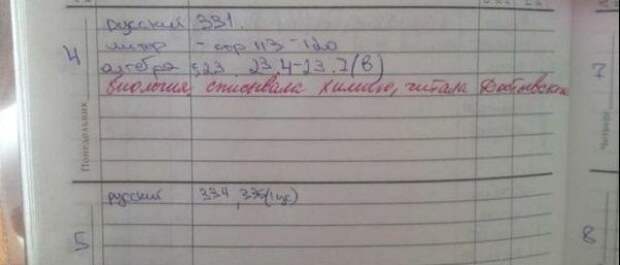 4
русский 331.
литер - стр 113-120
алгебра §23 23.4-23.7(в)
биология, списывала химию, читала Достоевского
Понедельник
русский 334, 335(1 ус)
5
7
Четверг
8